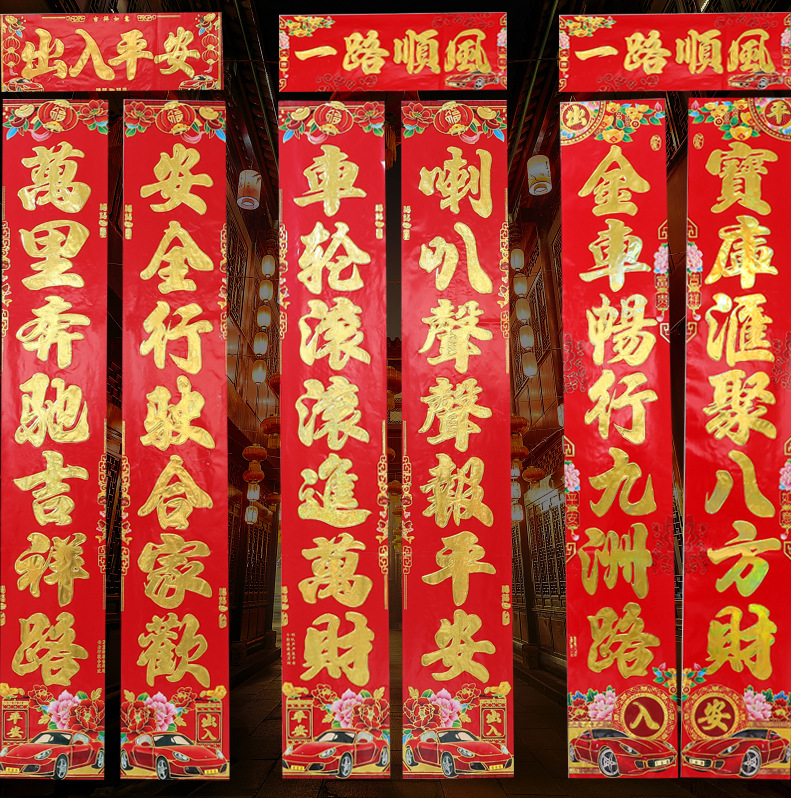 吉祥如意
出入平安
萬里奔馳吉祥路
安全行駛合家歡
平安
出入
一路順風
車轮滚滚進萬財
喇叭聲聲報平安
平安
出入
一路順風
出
平
金車暢行九洲路
寶庫滙聚八方財
富貴
吉祥
入
安